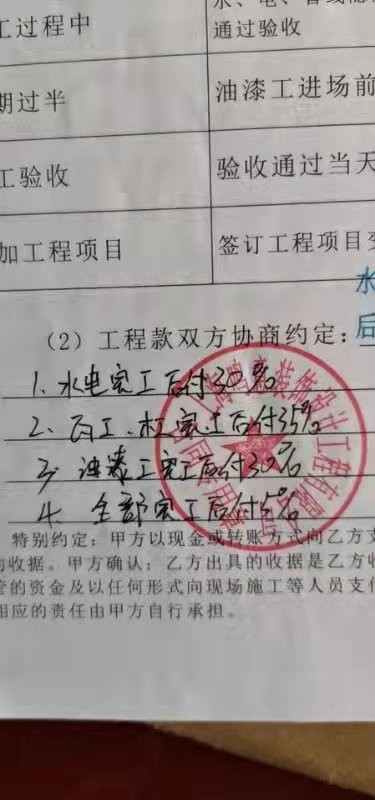 水、电、管线隐
工过程中
通过验收
期过半
油漆工进场前
工验收
验收通过当天
加工程项目
签订工程项目变
水
后
(2)工程款双方协商约定:
1、水电完工后付30%
2、瓦工、木工完工后付35%
3、油漆工完工后付30%
4、全部完工后付5%
装饰设计工程有限
合同专用章
特别约定:甲方以现金或转账方式向乙方支
的收据。甲方确认:乙方出具的收据是乙方收
管的资金及以任何形式向现场施工等人员支付
相应的责任由甲方自行承担。